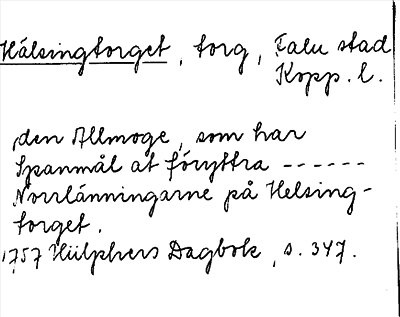 Hälsingtorget, torg, Falu stad
Kopp. l.
den Allmoge, som har
Spanmål at föryttra ------
Norrlänningarne på Helsing-
torget.
1757 Hülphers Dagbok, s. 347.